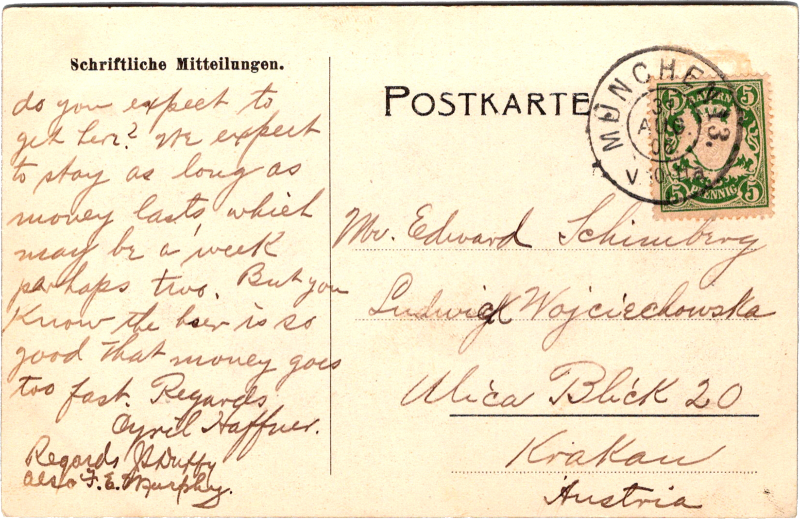 Schriftliche Mitteilungen.
do you expect to
get here? We expect
to stay as long as
money lasts which
may be a week
perhaps two. But you
know the beer is so
good that money goes
too fast. Regards
Cyril Haffner.
Regards J Duffy
also F. E. Murphy.
POSTKARTE
MÜNCHEN 13.
3
AUG
BAYERN
5 5
5 PFENNIG 5
Mr. Edward Schimberg
Ludwick Wojciechowska
Ulica Blick 20
Krakau
Austria